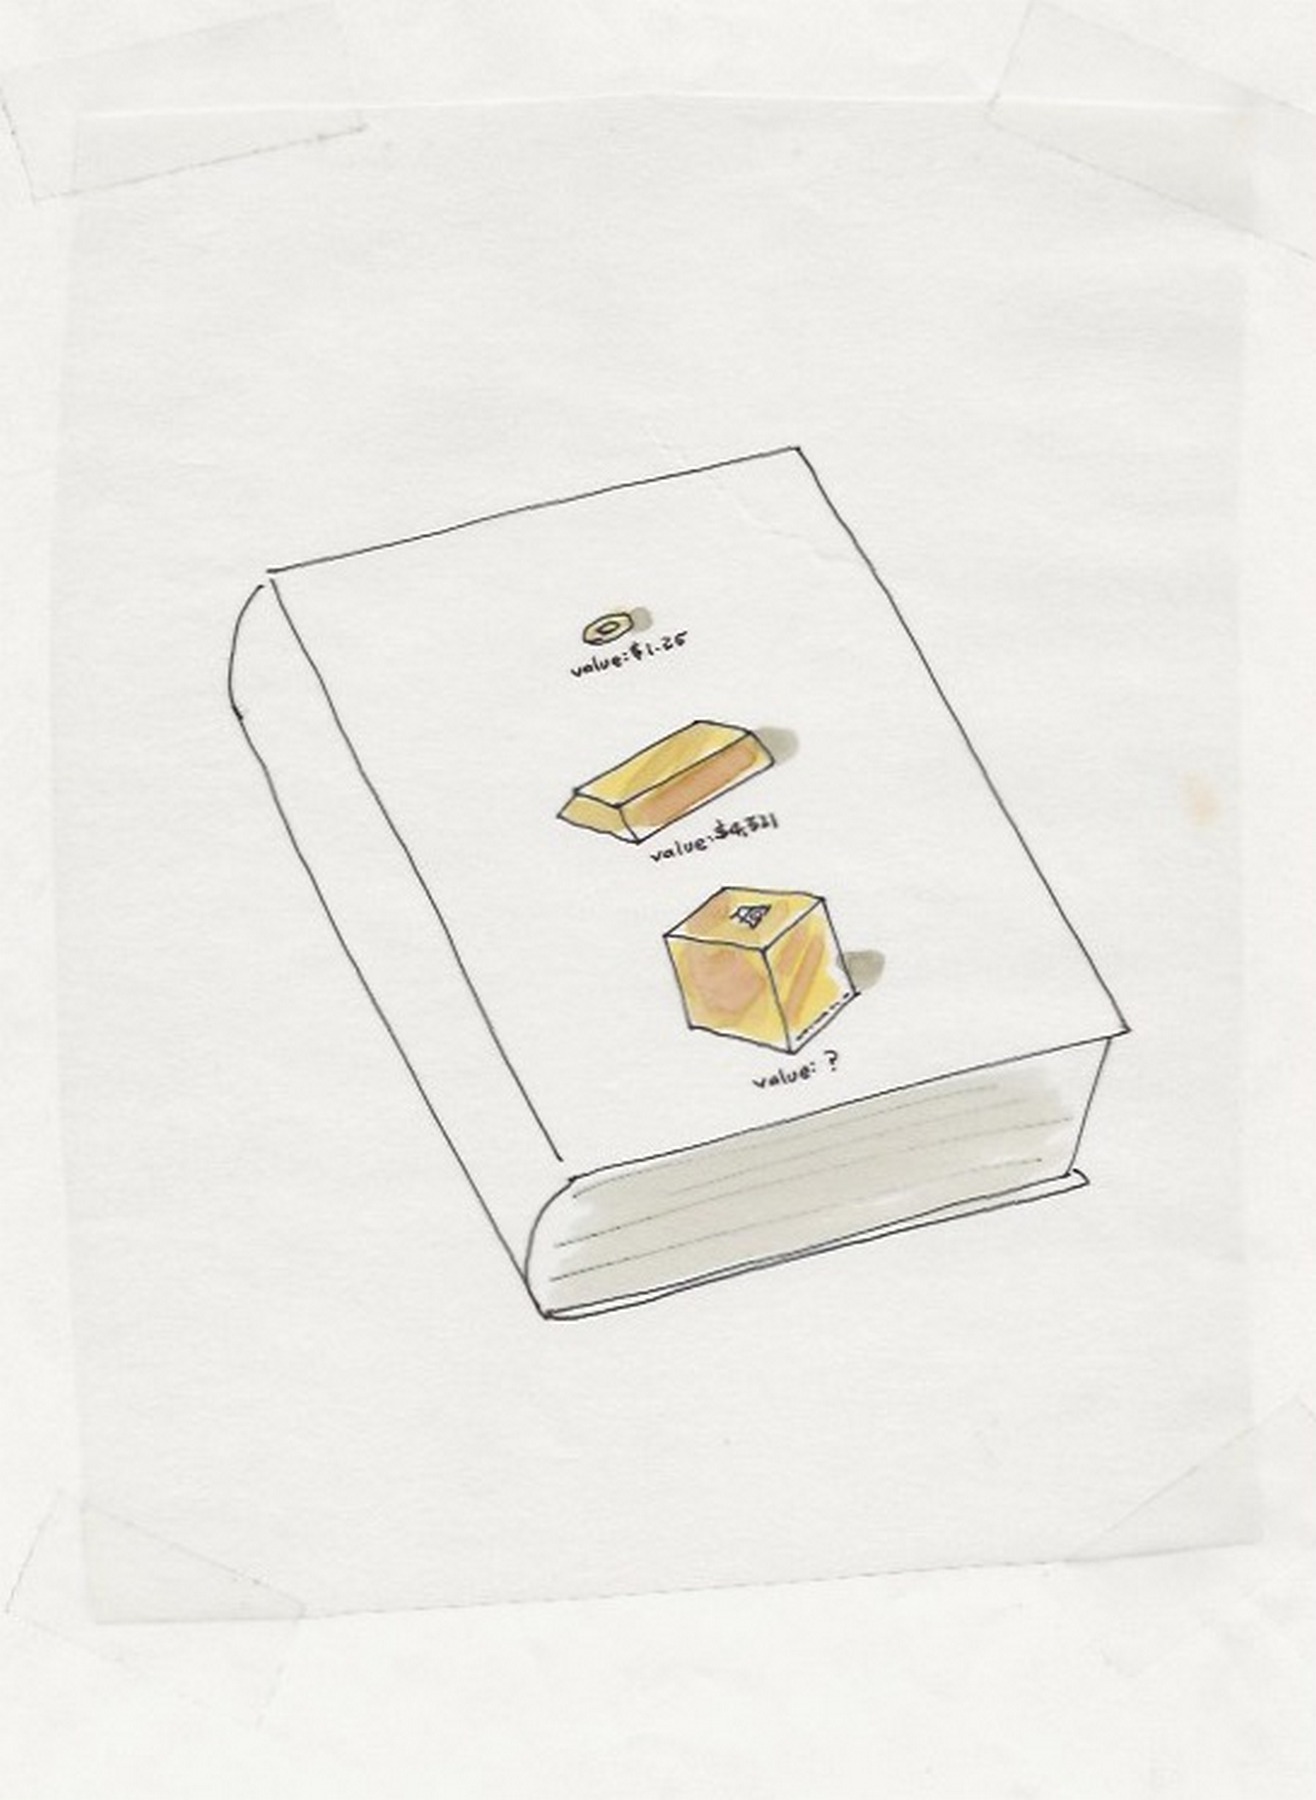 value: $1.25
value: $4,521
value: ?